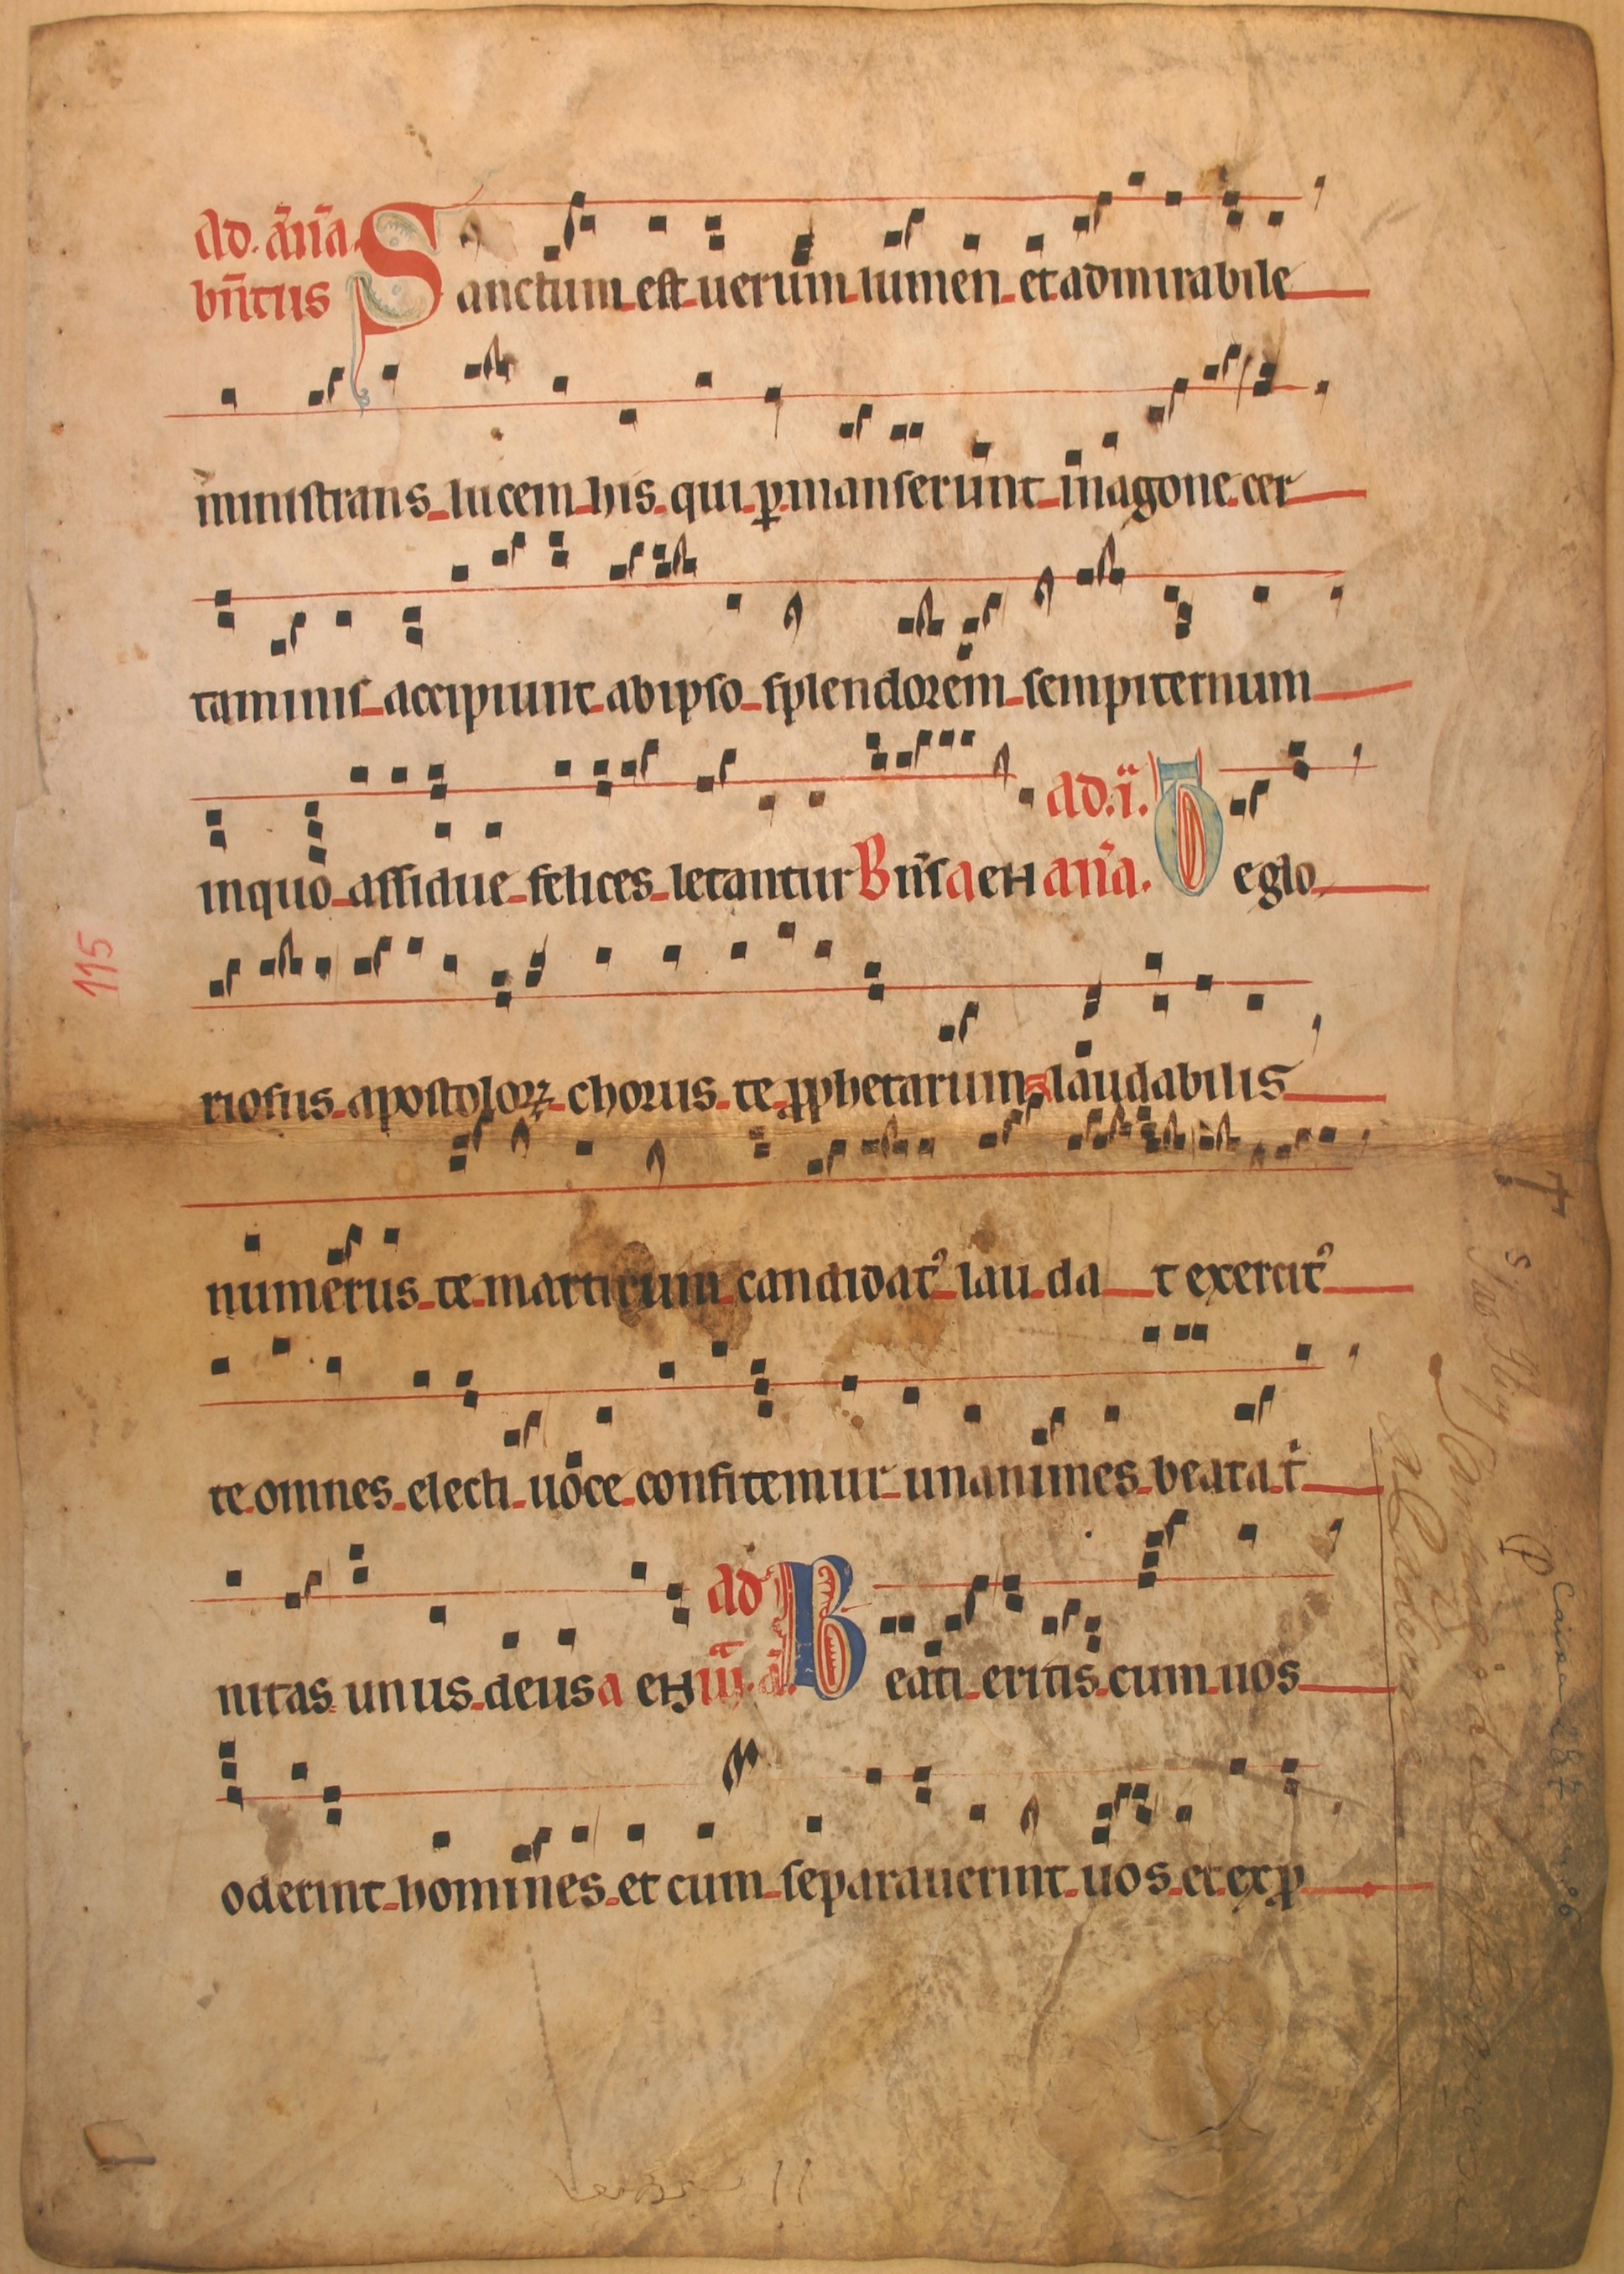 ad. an̄a.
bn̄tus Sanctum est uerum lumen et admirabile
ministrans lucem his qui ꝑmanserunt in agone cer
taminis accipiunt ab ipso splendorem sempiternum
ad.ii.
in quo assidue felices letantur Bn̄s aeH an̄a. Te glo
115
riosus apostoloꝝ chorus te ꝓphetarum laudabilis
numerus te martirum candidatꝰ lauda t exercitꝰ
te omnes electi uoce confitemur unanimes beata t
ad
nitas unus deus aeH iii. a. Beati eritis cum uos
oderint homines et cum separauerint uos et exꝓ